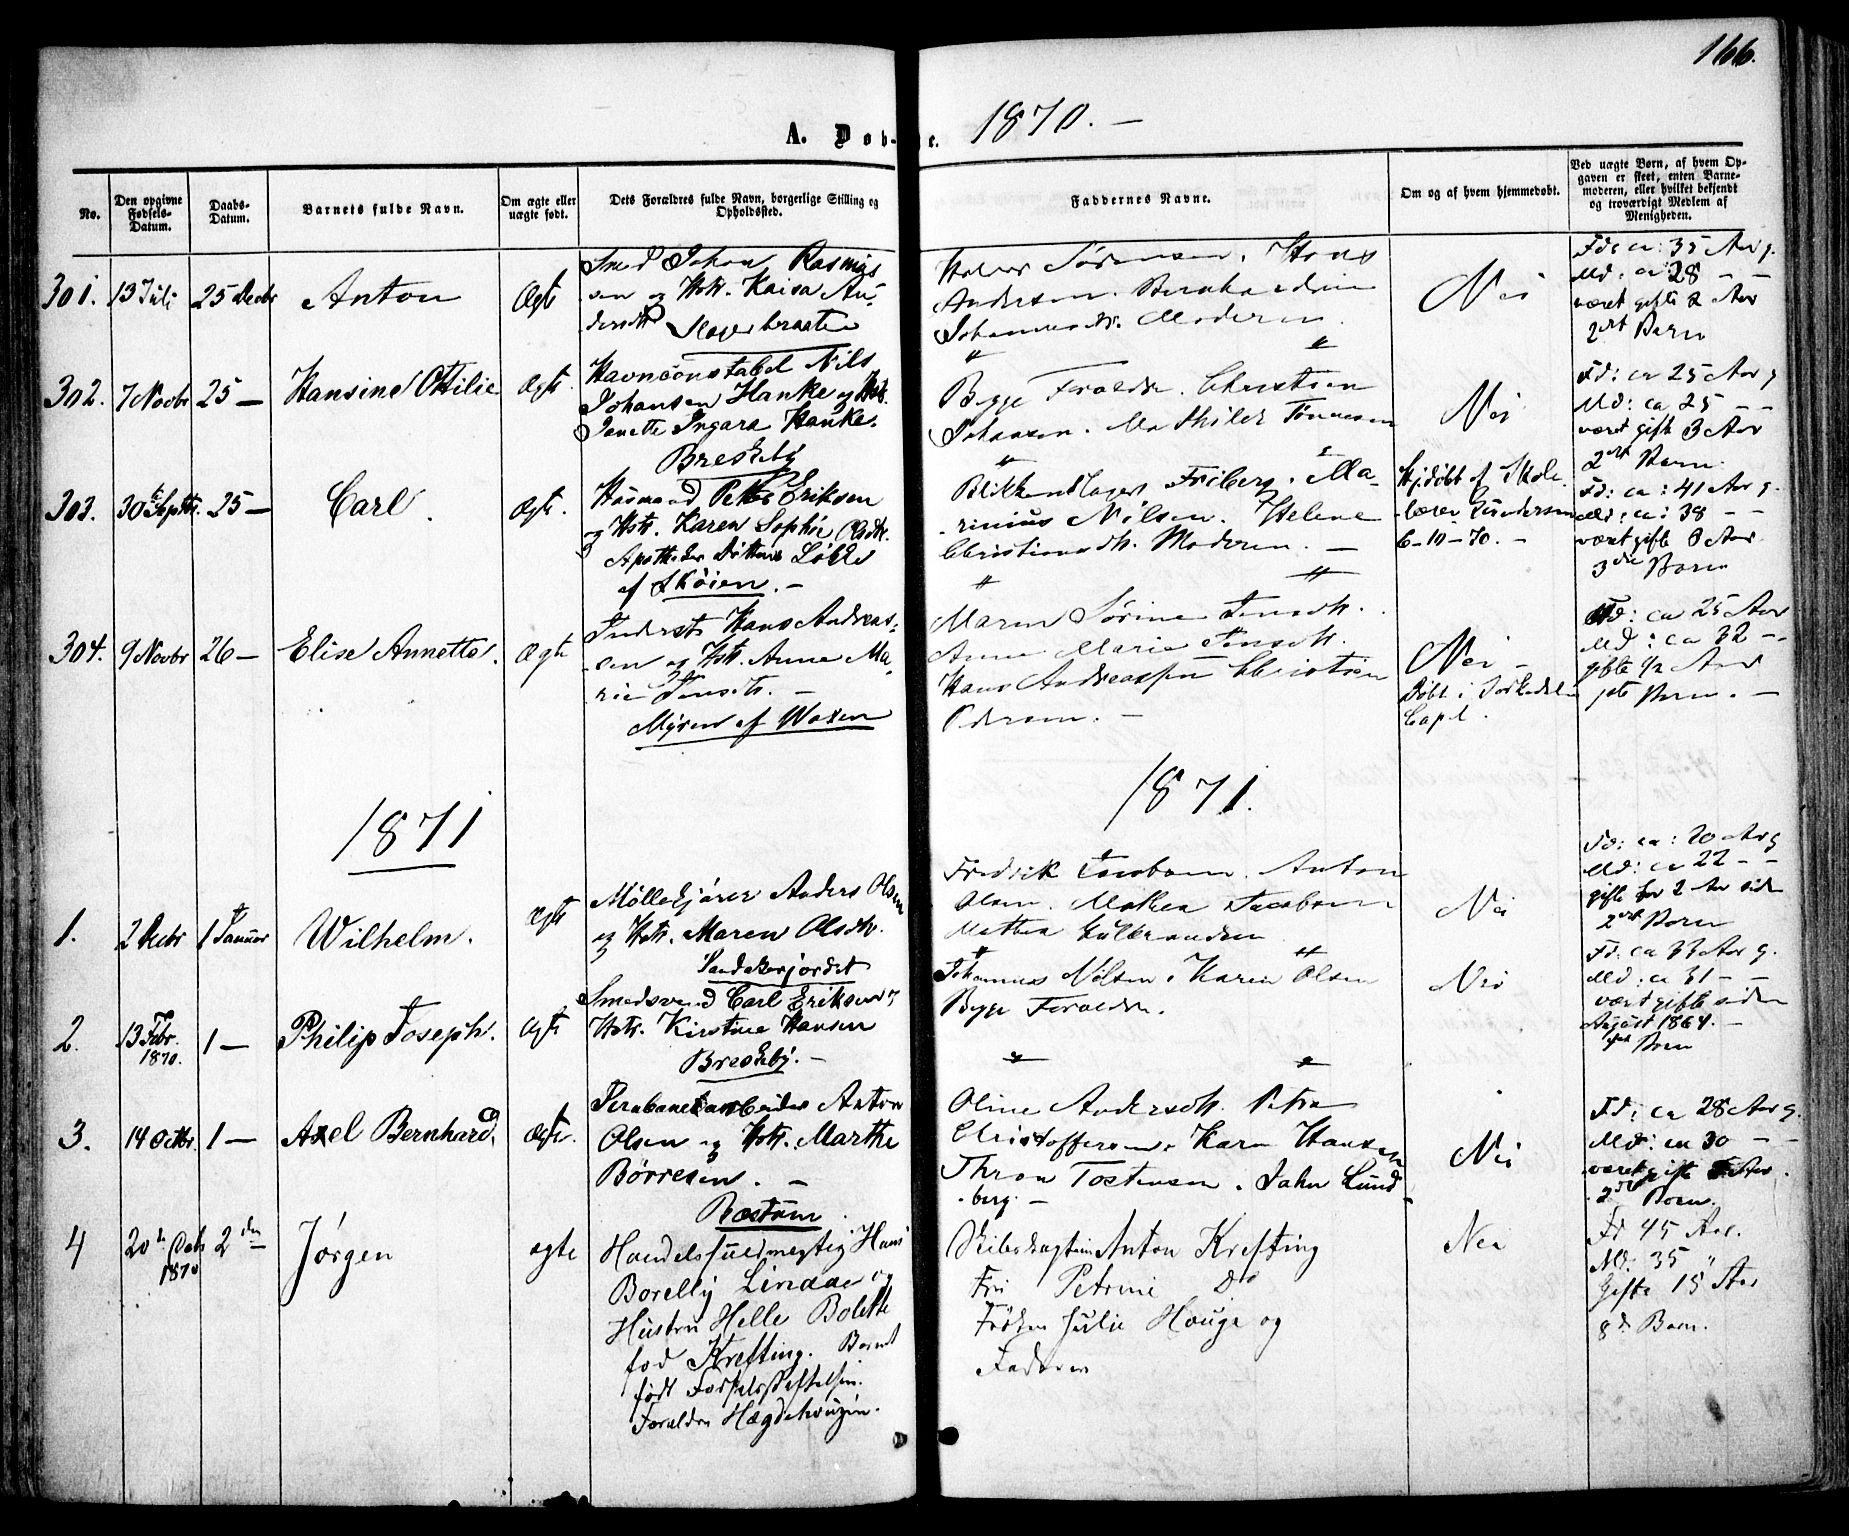 166.
A. Døb-te. 1870. —
No.
Den opgivne Fødsels-Datum.
Daabs-Datum.
Barnets fulde Navn.
Om ægte eller uægte født.
Dets Forældres fulde Navn, borgerlige Stilling og Opholdssted.
Faddernes Navne.
Om og af hvem hjemmedøbt.
Ved uægte Børn, af hvem Opgaven er skeet, enten Barnemoderen, eller hvilket bekjendt og troværdigt Medlem af Menigheden.
301. 13 Juli 25 Decbr Anton Ægte
Smed Johan Rasmus
sen og Hstr. Kaisa An
dersdtr
Halvor Sørensen. Hans
Andersen. Bernhardine
Johannesdtr. Moderen.
Nei
Fd: ca: 35 Aar g.
Md: ca 28 — —
været gifte 2 Aar
2det Barn
302. 7 Novbr 25 — Hansine Otilie Ægte.
Havneconstabel Nils
Johansen Hanke og Hstr.
Janette Ingara Hanke.
Briskeby
Begge Forældre. Christian
Johansen. Mathilde Tønnesen
Nei
Fd: ca 25 Aar g
Md: ca 25 — —
været gifte 3 Aar
2det Barn.
303. 30te Septbr. 25 — Carl. Ægte.
Husmand Peter Eriksen
og Hstr. Karen Sophie Olsdtr.
Løkke
af Skøien. —
Blikkenslager Friberg. Ma-
rinius Nilsen. Helene
Christiansdtr. Moderen. —
Hjdøbt af Skole
lærer Gundersen
6-10-70. —
Fd: ca: 41 Aar g.
Md: ca: 38 — —
været gifte 8 Aar
3die Barn
304. 9 Novbr 26 — Elise Annette. Ægte
Inderst Hans Andreas-
sen og Hstr. Anne Ma-
rie Jensdtr. —
Myren af Woxen
Maren Sørine Jensdtr.
Anne Marie Jensdtr.
Hans Andreassen Christian
Pedersen. —
Nei —
Døbt i Sørkedalen
Capel.
Fd: ca 25 Aar
Md: ca 32 — —
gifte 1/2 Aar
1ste Barn. —
1871
1871.
1. 2 Decbr 1 Januar Wilhelm. Ægte
Møllekjører Anders Olsen
og Hstr. Maren Olsdtr.
Sandakerjordet
Fredrik Jacobsen. Anton
Olsen. Mathea Jacobsen
Mathea Gulbrandsen
Nei
Fd: ca: 20 Aar g
Md: ca 22 — —
gifte for 2 Aar siden
2det Barn
2. 13 Febr. 1870. 1 — Philip Joseph. Ægte
Smedsvend Carl Eriksen og
Hstr. Kirstine Hansen
Briskeby. —
Johannes Nilsen. Karen Olsen
Begge Forældre.
Nei
Fd. ca 33 Aar g.
Md: ca 31 — —
været gifte siden
August 1864. —
Barn
3. 14 Octbr. 1 — Axel Bernhard. Ægte.
Jernbanearbeider Anton
Olsen og Hstr. Marthe
Børresen. —
Røstum.
Oline Andersdtr. Petra
Christoffersen. Karen Hansen
Thron Tostensen. John Lund-
berg. —
Nei
Fd: ca 28 Aar g.
Md: ca 30 — —
været gifte 5 Aar.
2det Barn.
4 20de Octb 1870 2den Jørgen ægte
Handelsfuldmægtig Hans
Borelly Lindaas og
Hustru Helle Bolette
fød Krefting. Barnet
født Fødselsstiftelsen.
Forældre Hægdehougen.
Skibskaptein Anton Krefting
Fru Petrine Do
Frøken Julie Houge og
Faderen
Nei
Fd 45 Aar.
Md: 35 "
Gifte 15 Aar
8de Barn.